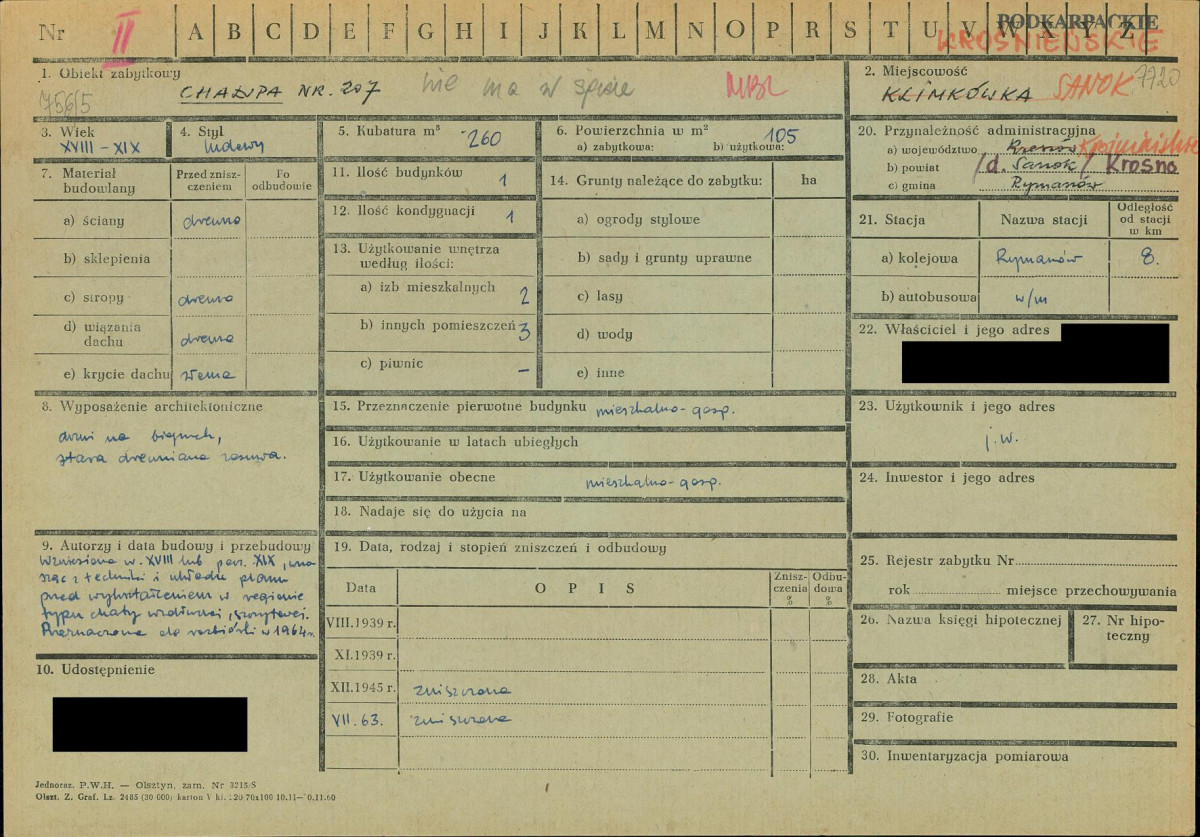 Nr II A B C D E F G H I J K L M N O P R S T U V W X Y Z PODKARPACKIE
KROŚNIEŃSKIE
1. Obiekt zabytkowy
CHAŁUPA NR. 207 nie ma w spisie MBL
2. Miejscowość
KLIMKÓWKA SANOK 7720
3. Wiek
XVIII – XIX
4. Styl
ludowy
5. Kubatura m³ 260
6. Powierzchnia w m² 105
a) zabytkowa: b) użytkowa:
20. Przynależność administracyjna
a) województwo Rzeszów Krośnieńskie
b) powiat /d. Sanok/ Krosno
c) gmina Rymanów
7. Materiał budowlany
Przed znisz-
czeniem
Po
odbudowie
a) ściany drewno
b) sklepienia
c) stropy drewno
d) wiązania
dachu drewno
e) krycie dachu słoma
8. Wyposażenie architektoniczne
drzwi na biegunach,
stara drewniana zasuwa.
9. Autorzy i data budowy i przebudowy
Wzniesiona w. XVIII lub pocz. XIX, wno-
sząc z techniki i układu planu
przed wykształceniem w regionie
typu chaty
Przeznaczona do rozbiórki w 1964 r.
10. Udostępnienie
11. Ilość budynków 1
12. Ilość kondygnacji 1
13. Użytkowanie wnętrza
według ilości:
a) izb mieszkalnych 2
b) innych pomieszczeń 3
c) piwnic –
14. Grunty należące do zabytku: ha
a) ogrody stylowe
b) sady i grunty uprawne
c) lasy
d) wody
e) inne
15. Przeznaczenie pierwotne budynku mieszkalno-gosp.
16. Użytkowanie w latach ubiegłych
17. Użytkowanie obecne mieszkalno-gosp.
18. Nadaje się do użycia na
19. Data, rodzaj i stopień zniszczeń i odbudowy
Data O P I S Znisz-
czenia
% Odbu-
dowa
%
VIII.1939 r.
XI.1939 r.
XII.1945 r. zniszczona
VII. 63. zniszczona
21. Stacja Nazwa stacji Odległość
od stacji
w km
a) kolejowa Rymanów 8.
b) autobusowa w/m
22. Właściciel i jego adres
23. Użytkownik i jego adres
j.w.
24. Inwestor i jego adres
25. Rejestr zabytku Nr
rok miejsce przechowywania
26. Nazwa księgi hipotecznej
27. Nr hipo-
teczny
28. Akta
29. Fotografie
30. Inwentaryzacja pomiarowa
Jednoraz. P.W.H. — Olsztyn, zam. Nr 3215/S
Olszt. Z. Graf. Lz. 2485 (30 000) karton V kl.